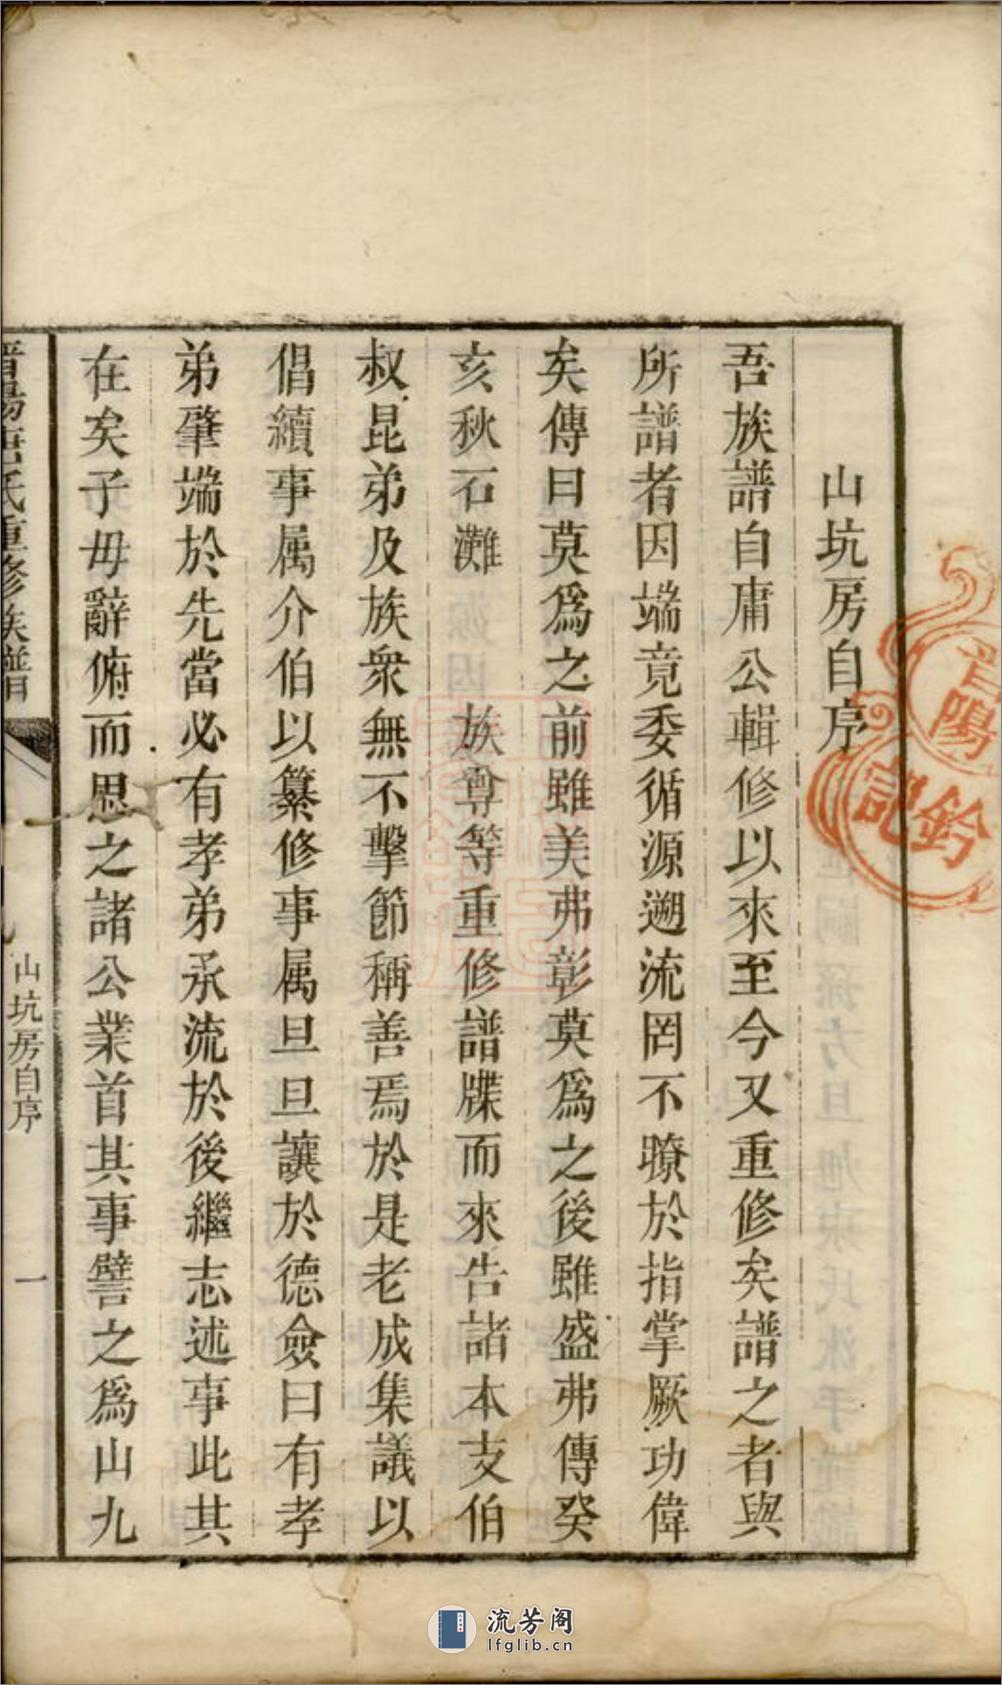 山坑房自序
吾族譜自庸公輯修以來至今又重修矣譜之者與
所譜者因端竟委循源遡流罔不瞭於指掌厥功偉
矣傳曰莫爲之前雖美弗彰莫爲之後雖盛弗傳癸
亥秋石灘 族尊等重修譜牒而來告諸本支伯
叔昆弟及族衆無不擊節稱善焉於是老成集議以
倡續事属介伯以纂修事属旦旦讓於德僉曰有孝
弟肇端於先當必有孝弟承流於後繼志述事此其
在矣子毋辭俯而思之諸公業首其事譬之爲山九
晋陽唐氏重修族譜
山坑房自序
一
晋陽
鈐記
流芳阁
lfglib.cn